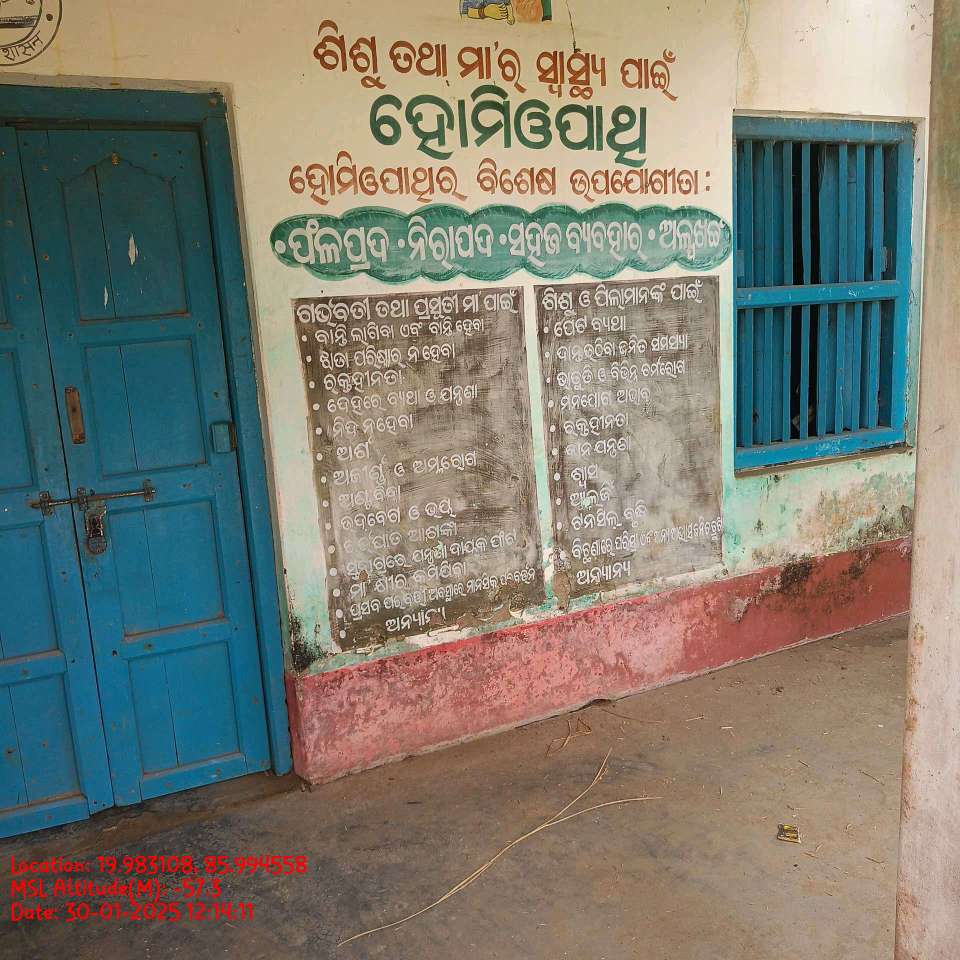 ଶାସନ
ଶିଶୁ ତଥା ମା'ର ସ୍ୱାସ୍ଥ୍ୟ ପାଇଁ
ହୋମିଓପାଥି
ହୋମିଓପାଥିର ବିଶେଷ ଉପଯୋଗୀତା :
• ଫଳପ୍ରଦ • ନିରାପଦ • ସହଜ ବ୍ୟବହାର • ଅଳ୍ପଖର୍ଚ୍ଚ
ଗର୍ଭବତୀ ତଥା ପ୍ରସୂତୀ ମା ପାଇଁ
• ବାନ୍ତି ଲାଗିବା ଏବଂ ବାନ୍ତି ହେବା
• ଝାଡା ପରିଷ୍କାର ନ ହେବା
• ରକ୍ତହୀନତା
• ଦେହରେ ବ୍ୟଥା ଓ ଯନ୍ତ୍ରଣା
• ନିଦ ନ ହେବା
• ଅର୍ଶ
• ଅଜୀର୍ଣ୍ଣ ଓ ଅମ୍ଳରୋଗ
• ଅଣ୍ଟାବିନ୍ଧା
• ଉଦବେଗ ଓ ଭୟ
• ଗର୍ଭପାତ ଆଶଙ୍କା
• ଯନ୍ତ୍ରଣା ଦାୟକ
• ମା କ୍ଷୀର କମିଯିବା
• ପ୍ରସବ ପରବର୍ତ୍ତୀ ଅବସ୍ଥାରେ ମାନସିକ ପରିବର୍ତ୍ତନ
• ଅନ୍ୟାନ୍ୟ
ଶିଶୁ ଓ ପିଲାମାନଙ୍କ ପାଇଁ
• ପେଟ ବ୍ୟଥା
• ଦାନ୍ତ ଉଠିବା ଜନିତ ସମସ୍ୟା
• ଓ ବିଭିନ୍ନ ଚର୍ମରୋଗ
• ମନଯୋଗ ଅଭାବ
• ରକ୍ତହୀନତା
• କାନ ଯନ୍ତ୍ରଣା
• ଶ୍ୱାସ
• ଆଲର୍ଜି
• ଟନସିଲ୍ ବୃଦ୍ଧି
• ବିଛଣାରେ ପରିସ୍ରା
• ଅନ୍ୟାନ୍ୟ
Location: 19.983108, 85.994558
MSL Altitude(M): -57.3
Date: 30-01-2025 12:14:11